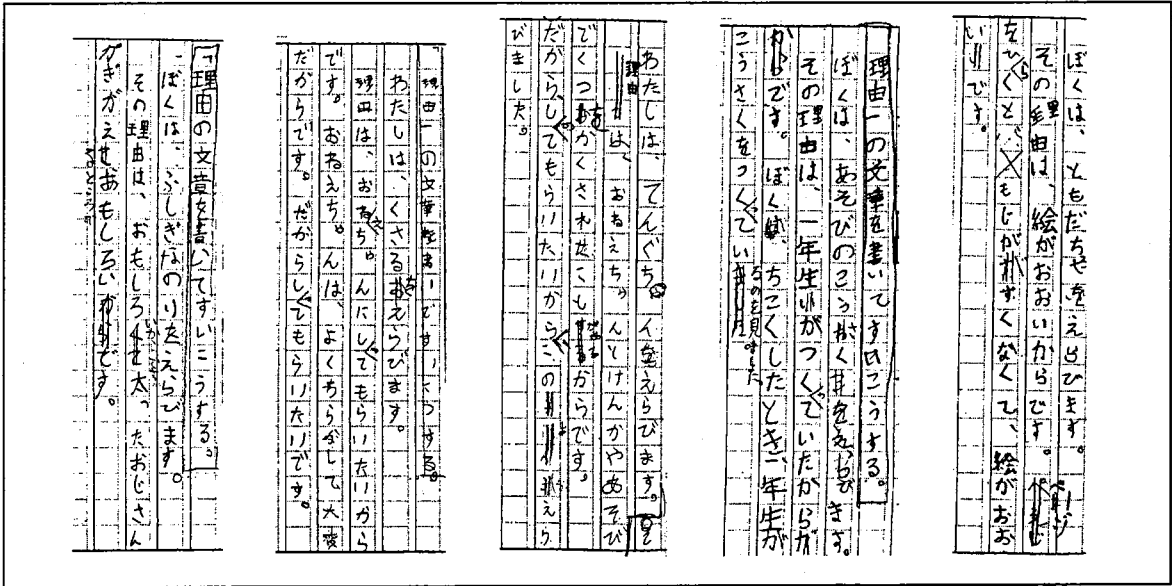 ぼくは、ともだちやをえらびます。
その理由は、絵がおおいからです。ページ
をひらくと、もじがすくなくて、絵がおお
いです。
「理由」の文章を書いてすいこうする。
ぼくは、あそびのこうさくをえらびます。
その理由は、一年生がつくっていたからが
です。ぼくは、ちこくしたとき、一年生が
こうさくをつくって
るのを見ました
わたしは、てんぐちゃんをえらびます。
理由は、おねえちゃんとけんかやあそび
でくつをかくされた
からです。
だからしてもらいたいから
びました。
「理由」の文章を
わたしは、くさるをえらびます。
理由は、おねえちゃんにしてもらいたいから
です。おねえちゃんは、よくちらかして大変
だからです。だからしてもらいたいです。
「理由の文章を書いてすいこうする。」
ぼくは、ふしぎなのりたえらびます。
その理由は、おもしろくて太ったおじさん
がおもしろい
です。